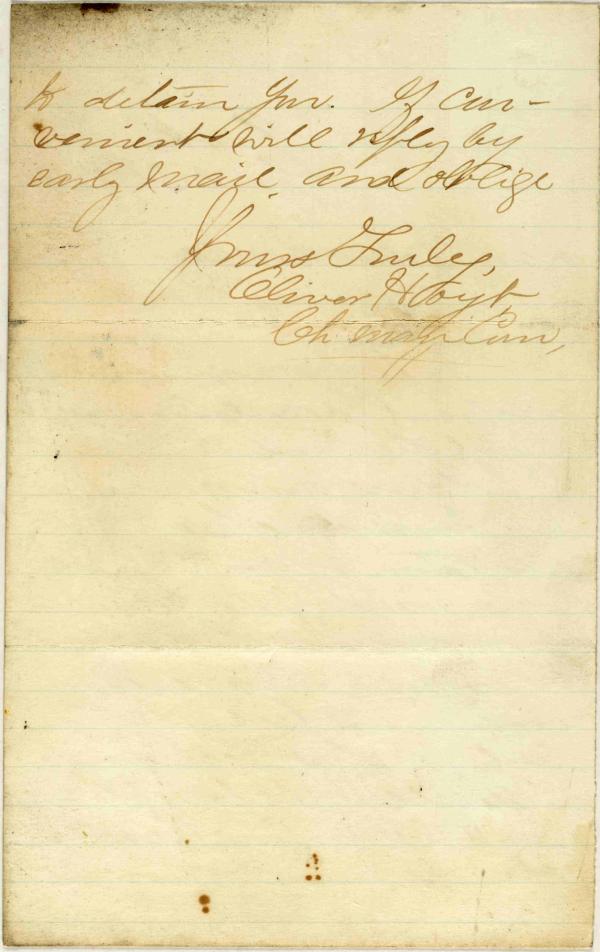 to detain you. If con-
venient will reply by
early mail and oblige
Yours Truly,
Oliver Hoyt,
Ch Com,